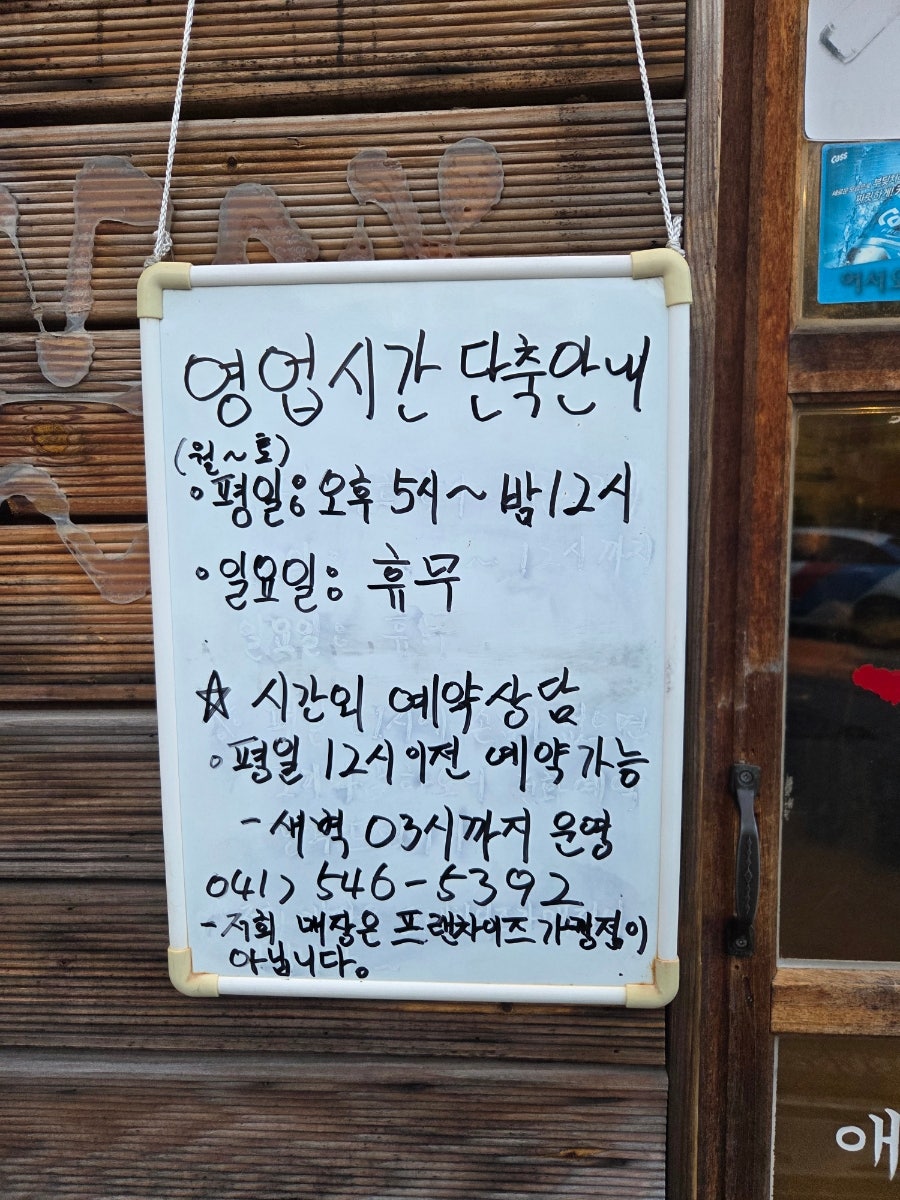 영업시간 단축안내
(월~토)
◦평일: 오후 5시~ 밤12시
◦일요일: 휴무
☆ 시간외 예약상담
◦평일 12시이전 예약가능
-새벽 03시까지 운영
041) 546-5392
-저희 매장은 프랜차이즈 가맹점이
아닙니다.
Cass
어서오
애